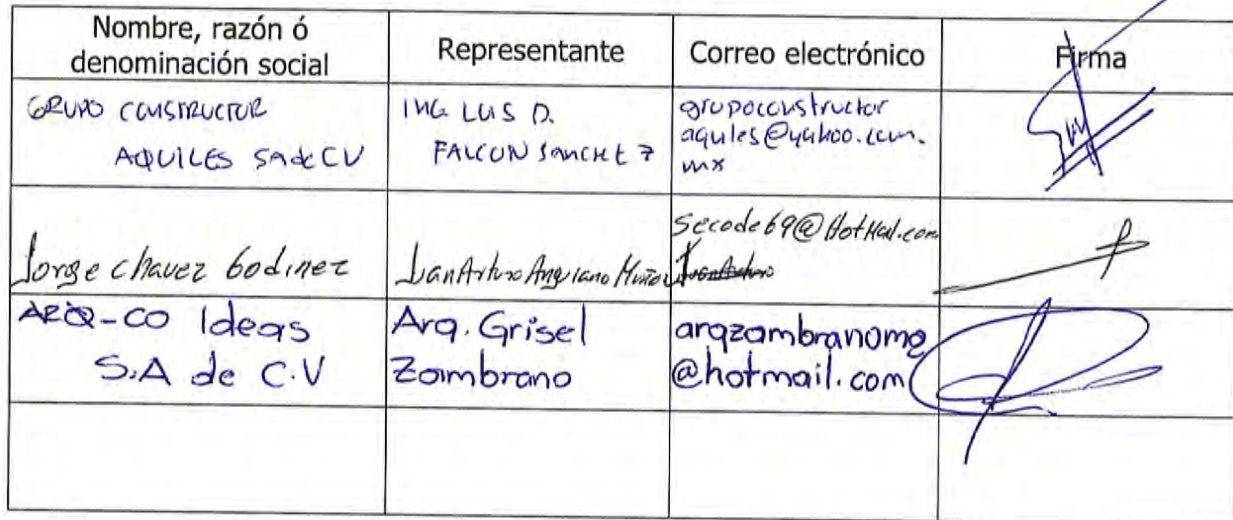 Nombre, razón ó
denominación social
Representante
Correo electrónico
Firma
GRUPO CONSTRUCTOR
AQUILES SA de CV
ING. LUIS D.
FALCON SANCHEZ
grupoconstructor
aquiles@yahoo.com.
mx
Jorge chavez Godinez
Juan Arturo Anguiano Muñoz
secode69@HotMail.com
ARQ-CO Ideas
S.A de C.V
Arq. Grisel
Zambrano
arqzambranomg
@hotmail.com